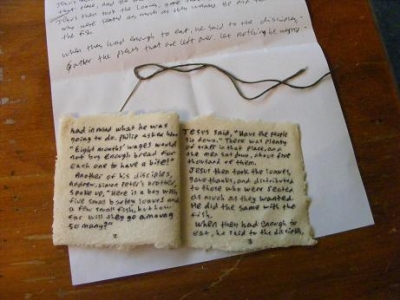 Jesus then took the loaves,
who were seated as much as they wanted. He did the same with
the fish.
When they had enough to eat, he said to the disciples,
Gather the pieces that are left over. Let nothing be wasted.
had in mind what he was
going to do. Philip
"Eight months' wages would
not buy enough bread for
each one to have a bite!"
Another of his disciples,
Andrew, Simon Peter's brother,
spoke up, "Here is a boy with
five small barley loaves and
a few small fish, but how
far will they go among
so many?"
2
Jesus said, "Have the people
sit down." There was plenty
of grass in that place, and
the men sat down, about five
thousand of them.
Jesus then took the loaves,
gave thanks, and distributed
to those who were seated
as much as they wanted.
He did the same with the
fish.
When they had enough to
eat, he said to the
3